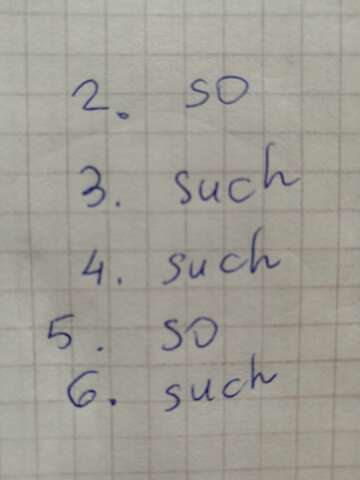 2. so
3. such
4. such
5. so
6. such